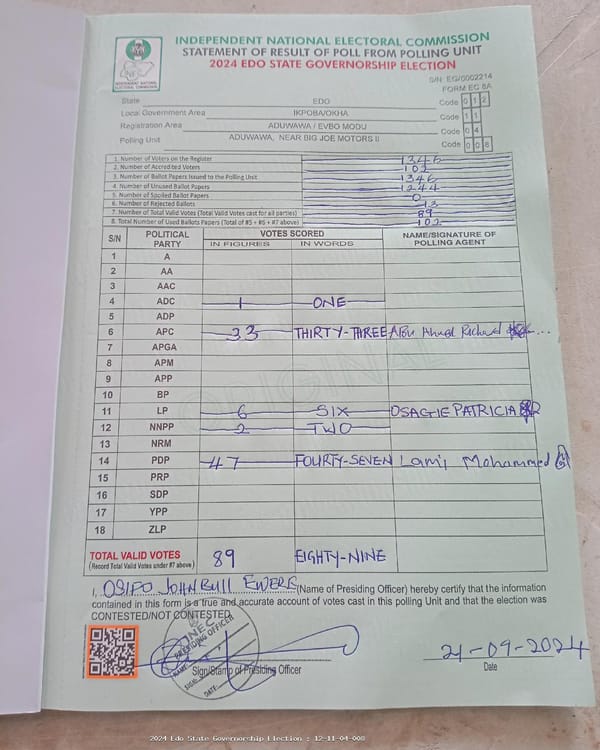 INDEPENDENT NATIONAL ELECTORAL COMMISSION
STATEMENT OF RESULT OF POLL FROM POLLING UNIT
2024 EDO STATE GOVERNORSHIP ELECTION
S/N: EG/0002214
FORM EC 8A
INDEPENDENT NATIONAL ELECTORAL COMMISSION
State EDO Code 012
Local Government Area IKPOBA/OKHA Code 11
Registration Area ADUWAWA / EVBO MODU Code 04
Polling Unit ADUWAWA, NEAR BIG JOE MOTORS II Code 008
1. Number of Voters on the Register 1346
2. Number of Accredited Voters 102
3. Number of Ballot Papers Issued to the Polling Unit 1346
4. Number of Unused Ballot Papers 1244
5. Number of Spoiled Ballot Papers 0
6. Number of Rejected Ballots 13
7. Number of Total Valid Votes (Total Valid Votes cast for all parties) 89
8. Total Number of Used Ballots Papers (Total of #5 + #6 + #7 above) 102
S/N POLITICAL PARTY VOTES SCORED NAME/SIGNATURE OF POLLING AGENT
IN FIGURES IN WORDS
1 A
2 AA
3 AAC
4 ADC 1 ONE
5 ADP
6 APC 33 THIRTY-THREE Abu Richard
7 APGA
8 APM
9 APP
10 BP
11 LP 6 SIX OSAGIE PATRICIA
12 NNPP 2 TWO
13 NRM
14 PDP 47 FOURTY-SEVEN Lami Mohammed
15 PRP
16 SDP
17 YPP
18 ZLP
TOTAL VALID VOTES 89 EIGHTY-NINE
(Record Total Valid Votes under #7 above)
I, OSIFO JOHNBULL (Name of Presiding Officer) hereby certify that the information
contained in this form is a true and accurate account of votes cast in this polling Unit and that the election was
CONTESTED/NOT CONTESTED.
INEC
PRESIDING OFFICER
NAME
SIGN
DATE
Sign/Stamp of Presiding Officer
21-09-2024
Date
ORIGINAL
2024 Edo State Governorship Election : 12-11-04-008